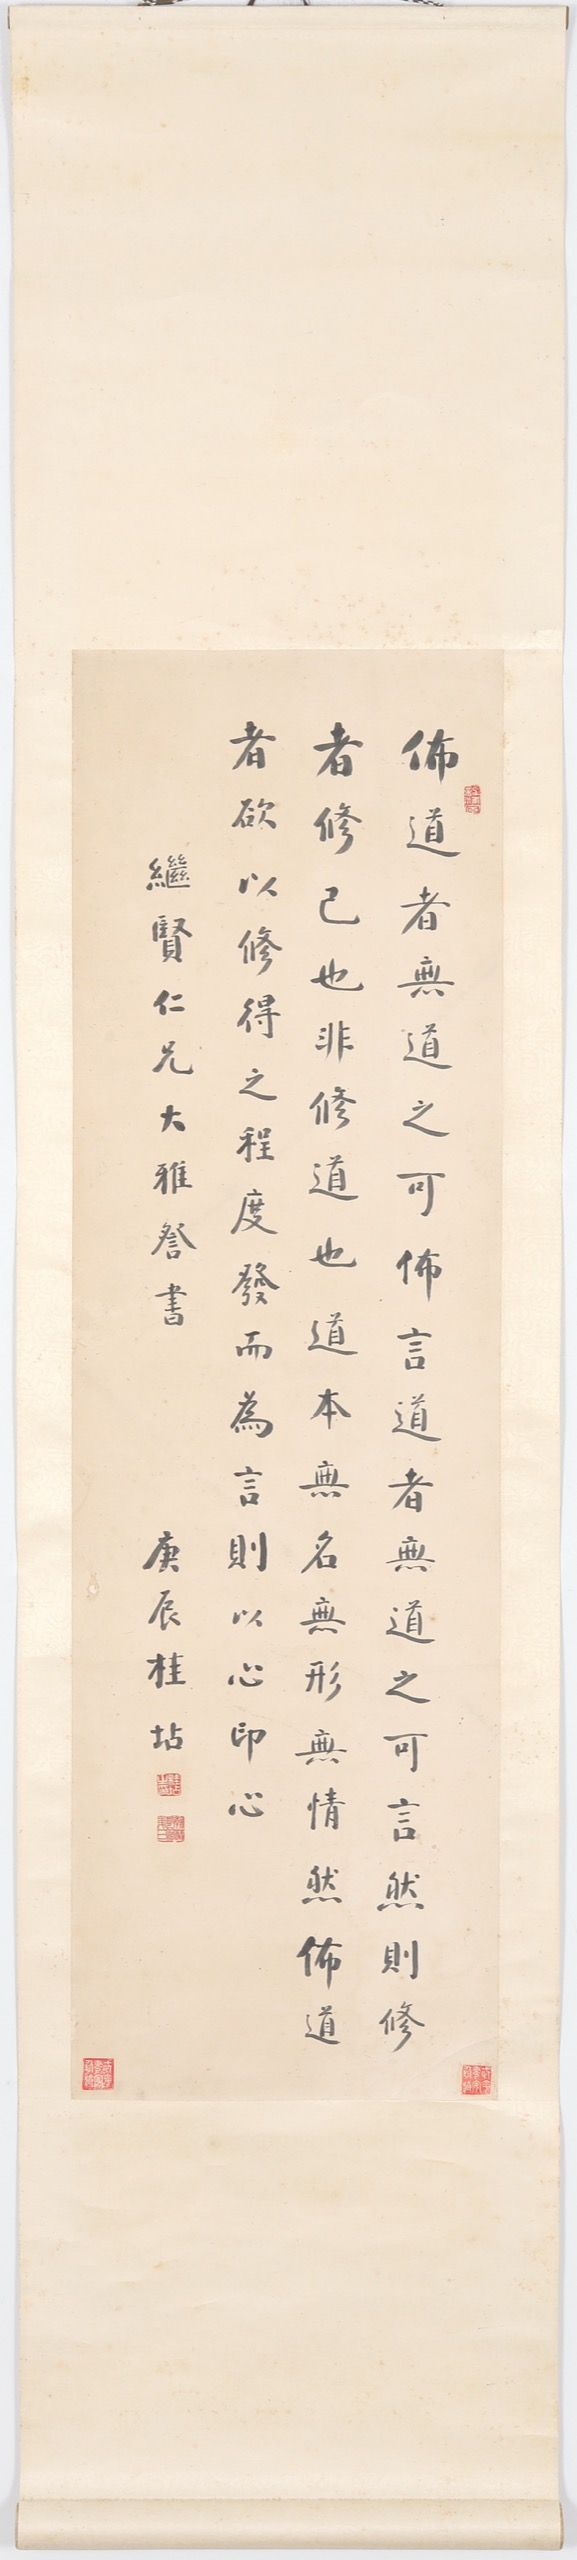 佈道者無道之可佈言道者無道之可言然則修
者修己也非修道也道本無名無形無情然佈道
者欲以修得之程度發而為言則以心印心
繼賢仁兄大雅詧書
庚辰桂坫